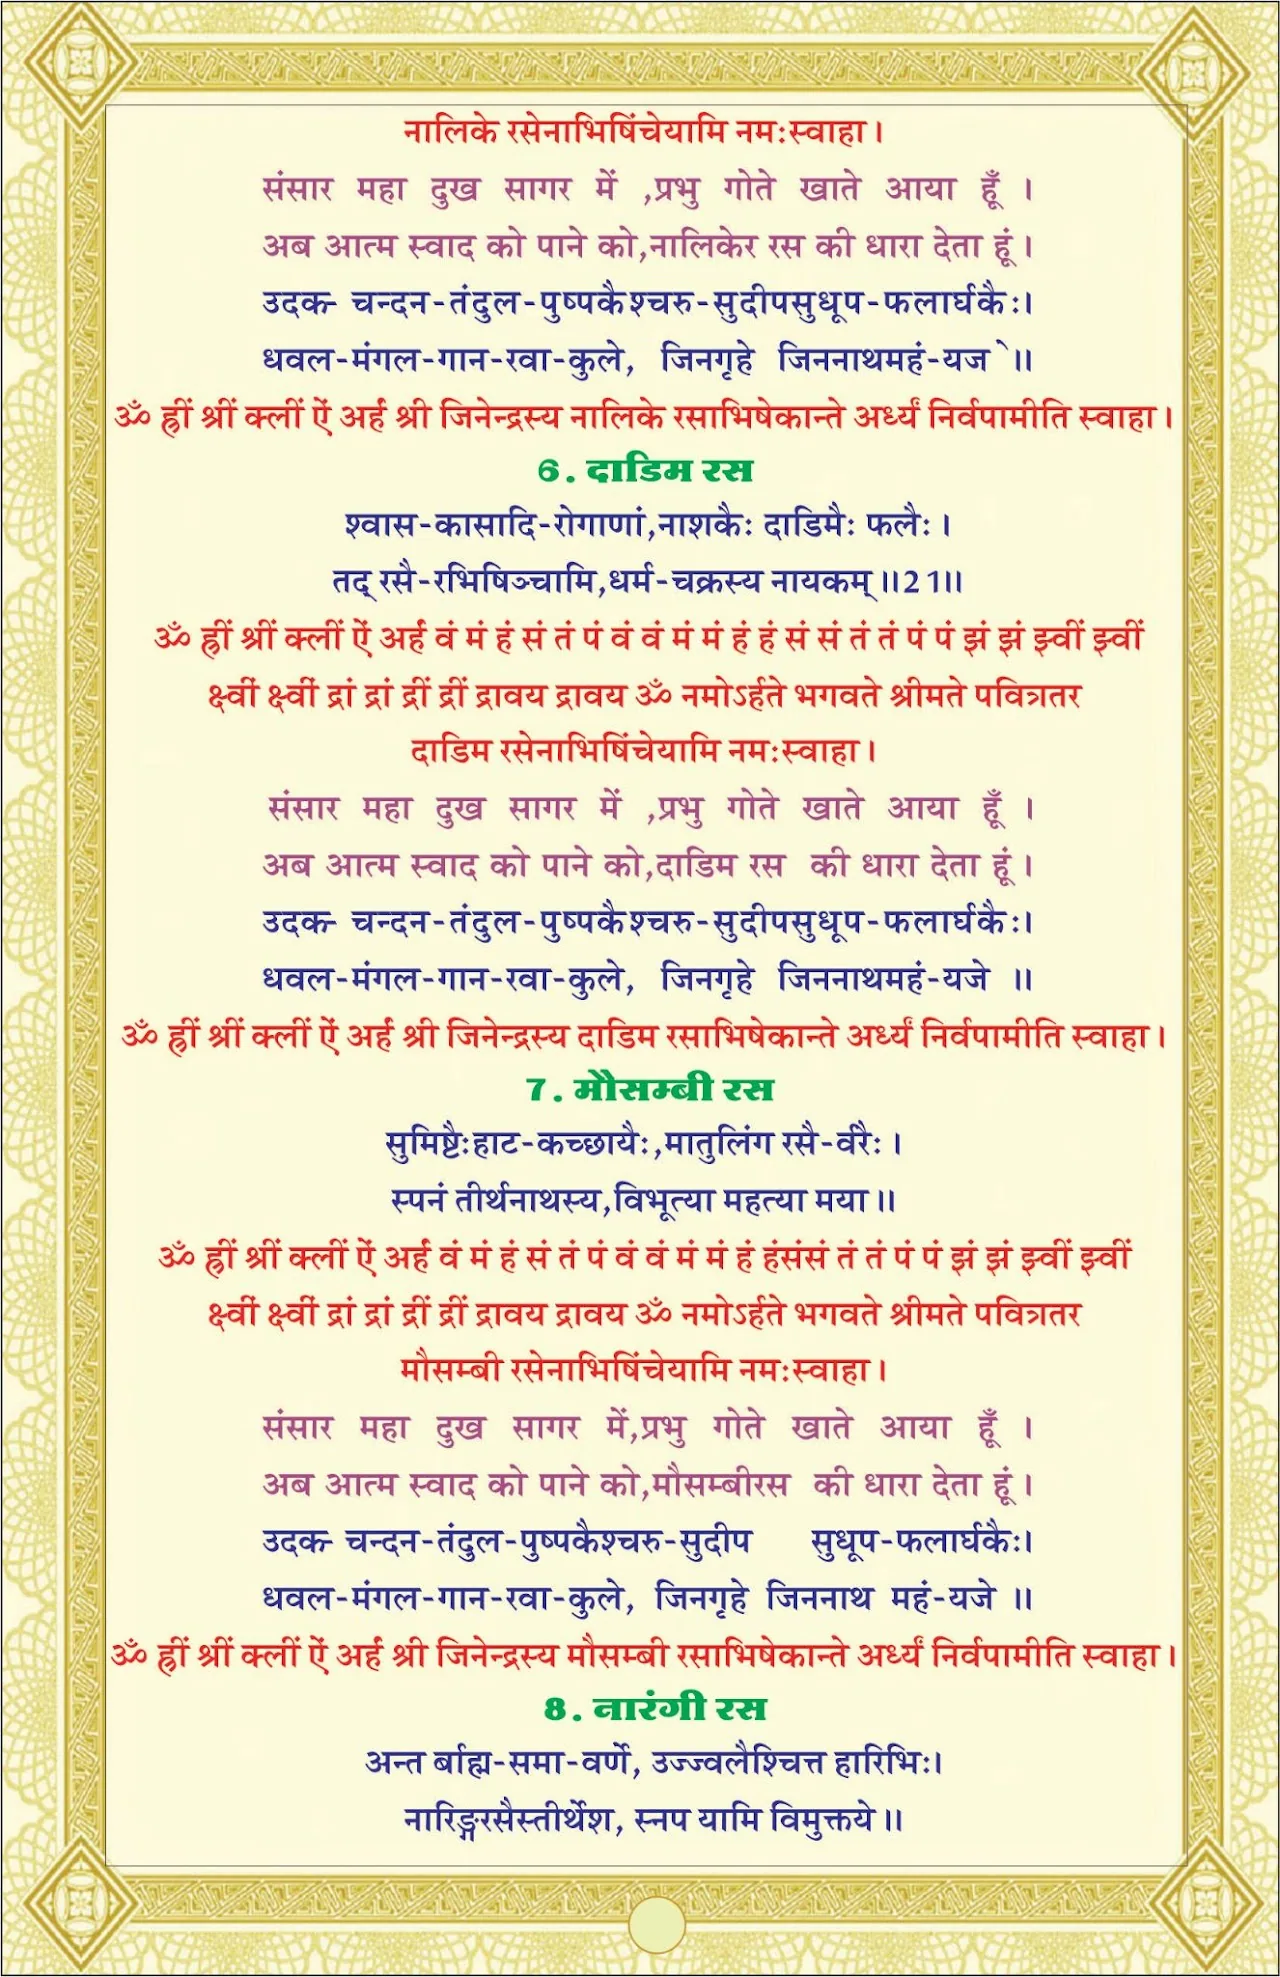 नालिके रसेनाभिषिंचेयामि नमःस्वाहा।
संसार महा दुख सागर में ,प्रभु गोते खाते आया हूँ ।
अब आत्म स्वाद को पाने को,नालिकेर रस की धारा देता हूं।
उदक- चन्दन-तंदुल-पुष्पकैश्चरु-सुदीपसुधूप-फलार्घकैः।
धवल-मंगल-गान-रवा-कुले, जिनगृहे जिननाथमहं-यजे॥
ॐ ह्रीं श्रीं क्लीं ऐं अर्हं श्री जिनेन्द्रस्य नालिके रसाभिषेकान्ते अर्ध्यं निर्वपामीति स्वाहा।
6. दाडिम रस
श्वास-कासादि-रोगाणां,नाशकैः दाडिमैः फलैः।
तद् रसै-रभिषिञ्चामि,धर्म-चक्रस्य नायकम्॥21॥
ॐ ह्रीं श्रीं क्लीं ऐं अर्हं वं मं हं सं तं पं वं वं मं मं हं हं सं सं तं तं पं पं झं झं झ्वीं झ्वीं
क्ष्वीं क्ष्वीं द्रां द्रां द्रीं द्रीं द्रावय द्रावय ॐ नमोऽर्हते भगवते श्रीमते पवित्रतर
दाडिम रसेनाभिषिंचेयामि नमःस्वाहा।
संसार महा दुख सागर में ,प्रभु गोते खाते आया हूँ ।
अब आत्म स्वाद को पाने को,दाडिम रस की धारा देता हूं।
उदक- चन्दन-तंदुल-पुष्पकैश्चरु-सुदीपसुधूप-फलार्घकैः।
धवल-मंगल-गान-रवा-कुले, जिनगृहे जिननाथमहं-यजे ॥
ॐ ह्रीं श्रीं क्लीं ऐं अर्हं श्री जिनेन्द्रस्य दाडिम रसाभिषेकान्ते अर्ध्यं निर्वपामीति स्वाहा।
7. मौसम्बी रस
सुमिष्टैःहाट-कच्छायैः,मातुलिंग रसै-र्वरैः।
स्पनं तीर्थनाथस्य,विभूत्या महत्या मया॥
ॐ ह्रीं श्रीं क्लीं ऐं अर्हं वं मं हं सं तं पं वं वं मं मं हं हंसंसं तं तं पं पं झं झं झ्वीं झ्वीं
क्ष्वीं क्ष्वीं द्रां द्रां द्रीं द्रीं द्रावय द्रावय ॐ नमोऽर्हते भगवते श्रीमते पवित्रतर
मौसम्बी रसेनाभिषिंचेयामि नमःस्वाहा।
संसार महा दुख सागर में,प्रभु गोते खाते आया हूँ ।
अब आत्म स्वाद को पाने को,मौसम्बीरस की धारा देता हूं।
उदक- चन्दन-तंदुल-पुष्पकैश्चरु-सुदीप सुधूप-फलार्घकैः।
धवल-मंगल-गान-रवा-कुले, जिनगृहे जिननाथ महं-यजे ॥
ॐ ह्रीं श्रीं क्लीं ऐं अर्हं श्री जिनेन्द्रस्य मौसम्बी रसाभिषेकान्ते अर्ध्यं निर्वपामीति स्वाहा।
8. नारंगी रस
अन्त र्बाह्म-समा-वर्णे, उज्ज्वलैश्चित्त हारिभिः।
नारिङ्गरसैस्तीर्थेश, स्नप यामि विमुक्तये॥